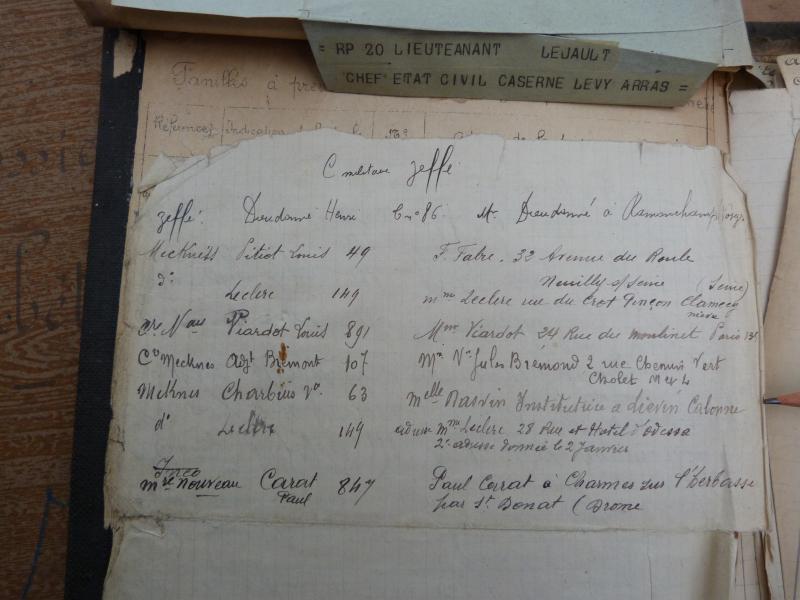 = RP 20 LIEUTEANANT LEJAULT
CHEF ETAT CIVIL CASERNE LEVY ARRAS =
Familles à
Références Indication
C militaire Zeffé
Zeffé. Dieudonné Henri C no 86. Mr. Dieudonné à Rammchamp Vosg.
Mecknèss Pitiot Louis 49 F. Fabre. 32 Avenue du Roule
Neuilly s/ Seine (Seine)
do Leclerc 149 Mme Leclerc rue du Crot Pinçon Clamecy
Nièvre
Viardot Louis 891 Mme Viardot 24 Rue du moulinet Paris 13e
Co Mecknes Adjt Bremont 107 Mme Ve Jules Bremond 2 rue Chemin Vert
Cholet M et L
Meknes Charbins Vor 63 Melle Massin Institutrice a Lievin Calonne
do Leclerc 149 adresse Mme Leclerc 28 Rue et Hotel d'Odessa
2e adresse donnée le 2 Janvier
mre Nouveau Carat 847 Paul Carat à Charmes sur l'Herbasse
Paul par St Donat (Drome